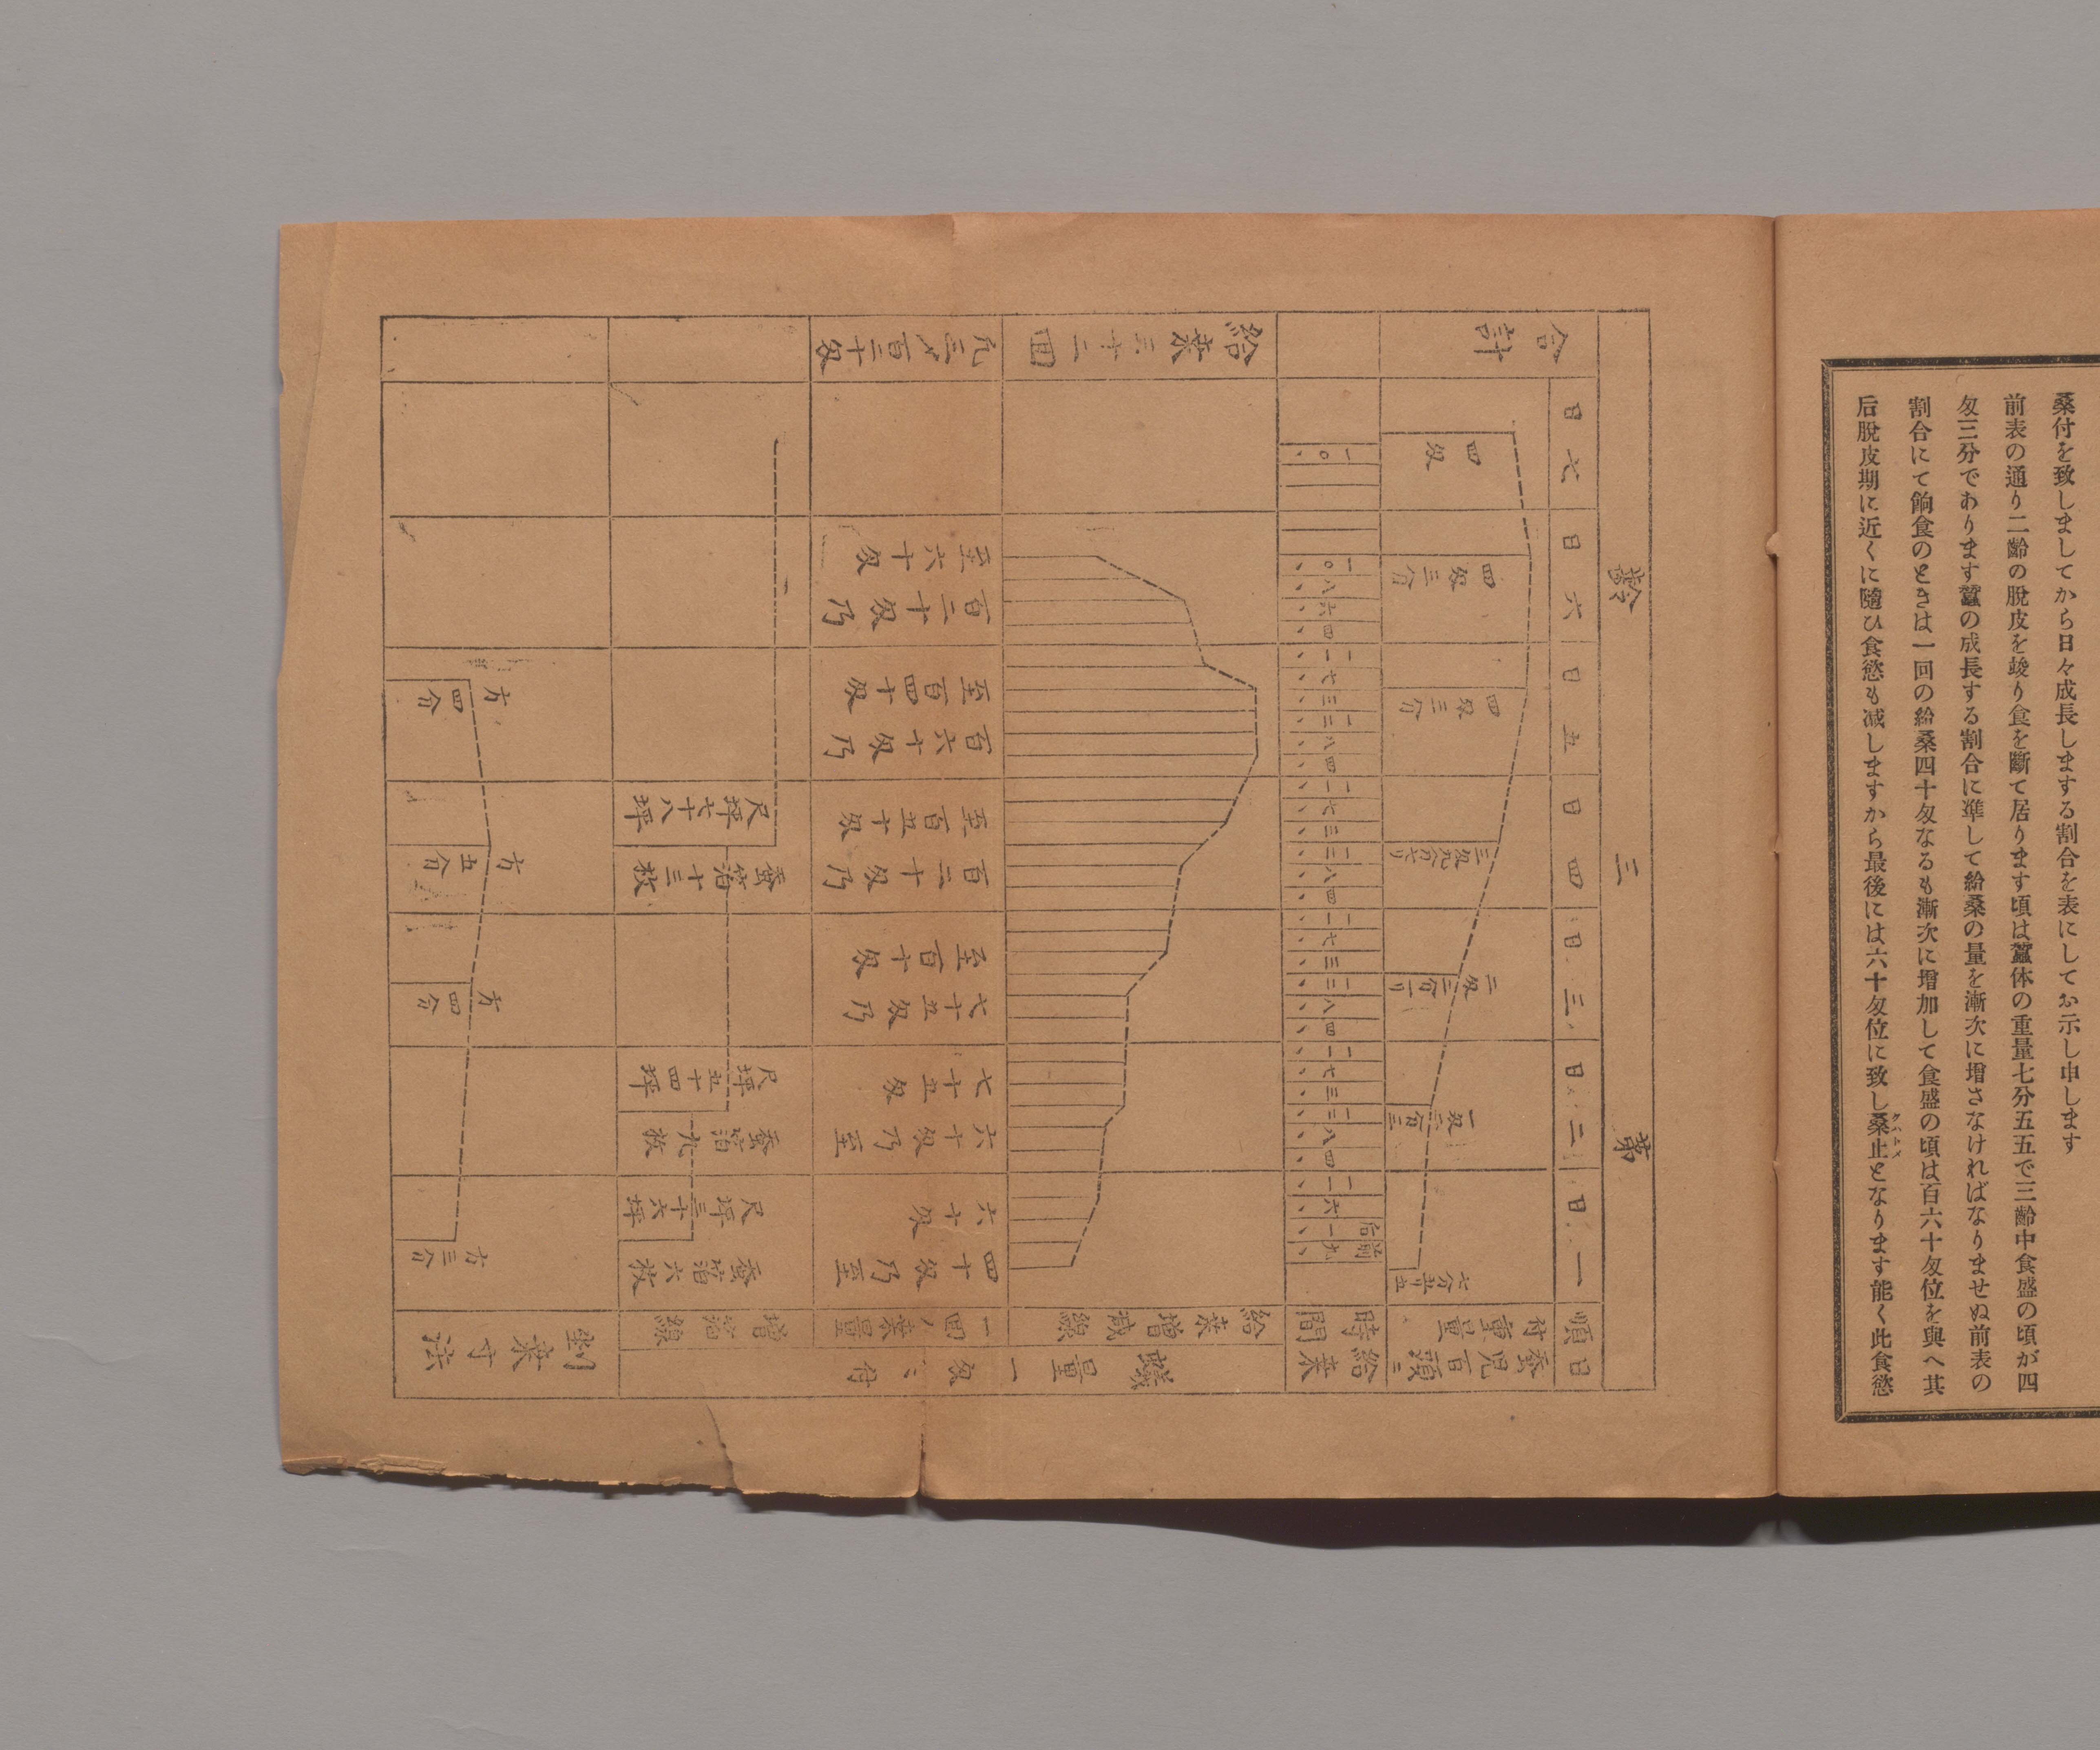 桑付を致しましてから日々成長しまする割合を表にしてお示し申します
前表の通り二齢の脱皮を竣り食を斷て居ります頃は蠶体の重量七分五五で三齢中食盛の頃が四
匁三分であります蠶の成長する割合に準して給桑の量を漸次に增さなければなりませぬ前表の
割合にて餉食のときは一回の給桑四十匁なるも漸次に增加して食盛の頃は百六十匁位を與へ其
后脱皮期に近くに隨ひ食慾も減しますから最後には六十匁位に致し桑止となります能く此食慾
クハトメ
第三齢
日順
一日
二日
三日
四日
五日
六日
七日
合計
蚕児百頭ニ付重量
七分五リ五
一匁三分三
二匁三分一リ
三匁九分七リ
四匁三分
四匁三分
四匁
給桑時間
前九、
后一、
六、
一一、
四、
八、
一二、
三、
七、
一一、
四、
八、
一二、
三、
七、
一一、
四、
八、
一二、
三、
七、
一一、
四、
八、
一二、
三、
七、
一一、
四、
六、
八、
一〇、
一〇、
蟻量一匁ニ付
給桑増減線
給桑三十二回
一回ノ桑量
四十匁乃至六十匁
六十匁乃至七十五匁
七十五匁乃至百十匁
百二十匁乃至百五十匁
百六十匁乃至百四十匁
百二十匁乃至六十匁
凡三メ百三十匁
増箔線
蚕箔六枚
尺坪三十六坪
蚕箔九枚
尺坪五十四坪
蚕箔十三枚
尺坪七十八坪
剉桑寸法
方三分
方四分
方五分
方四分